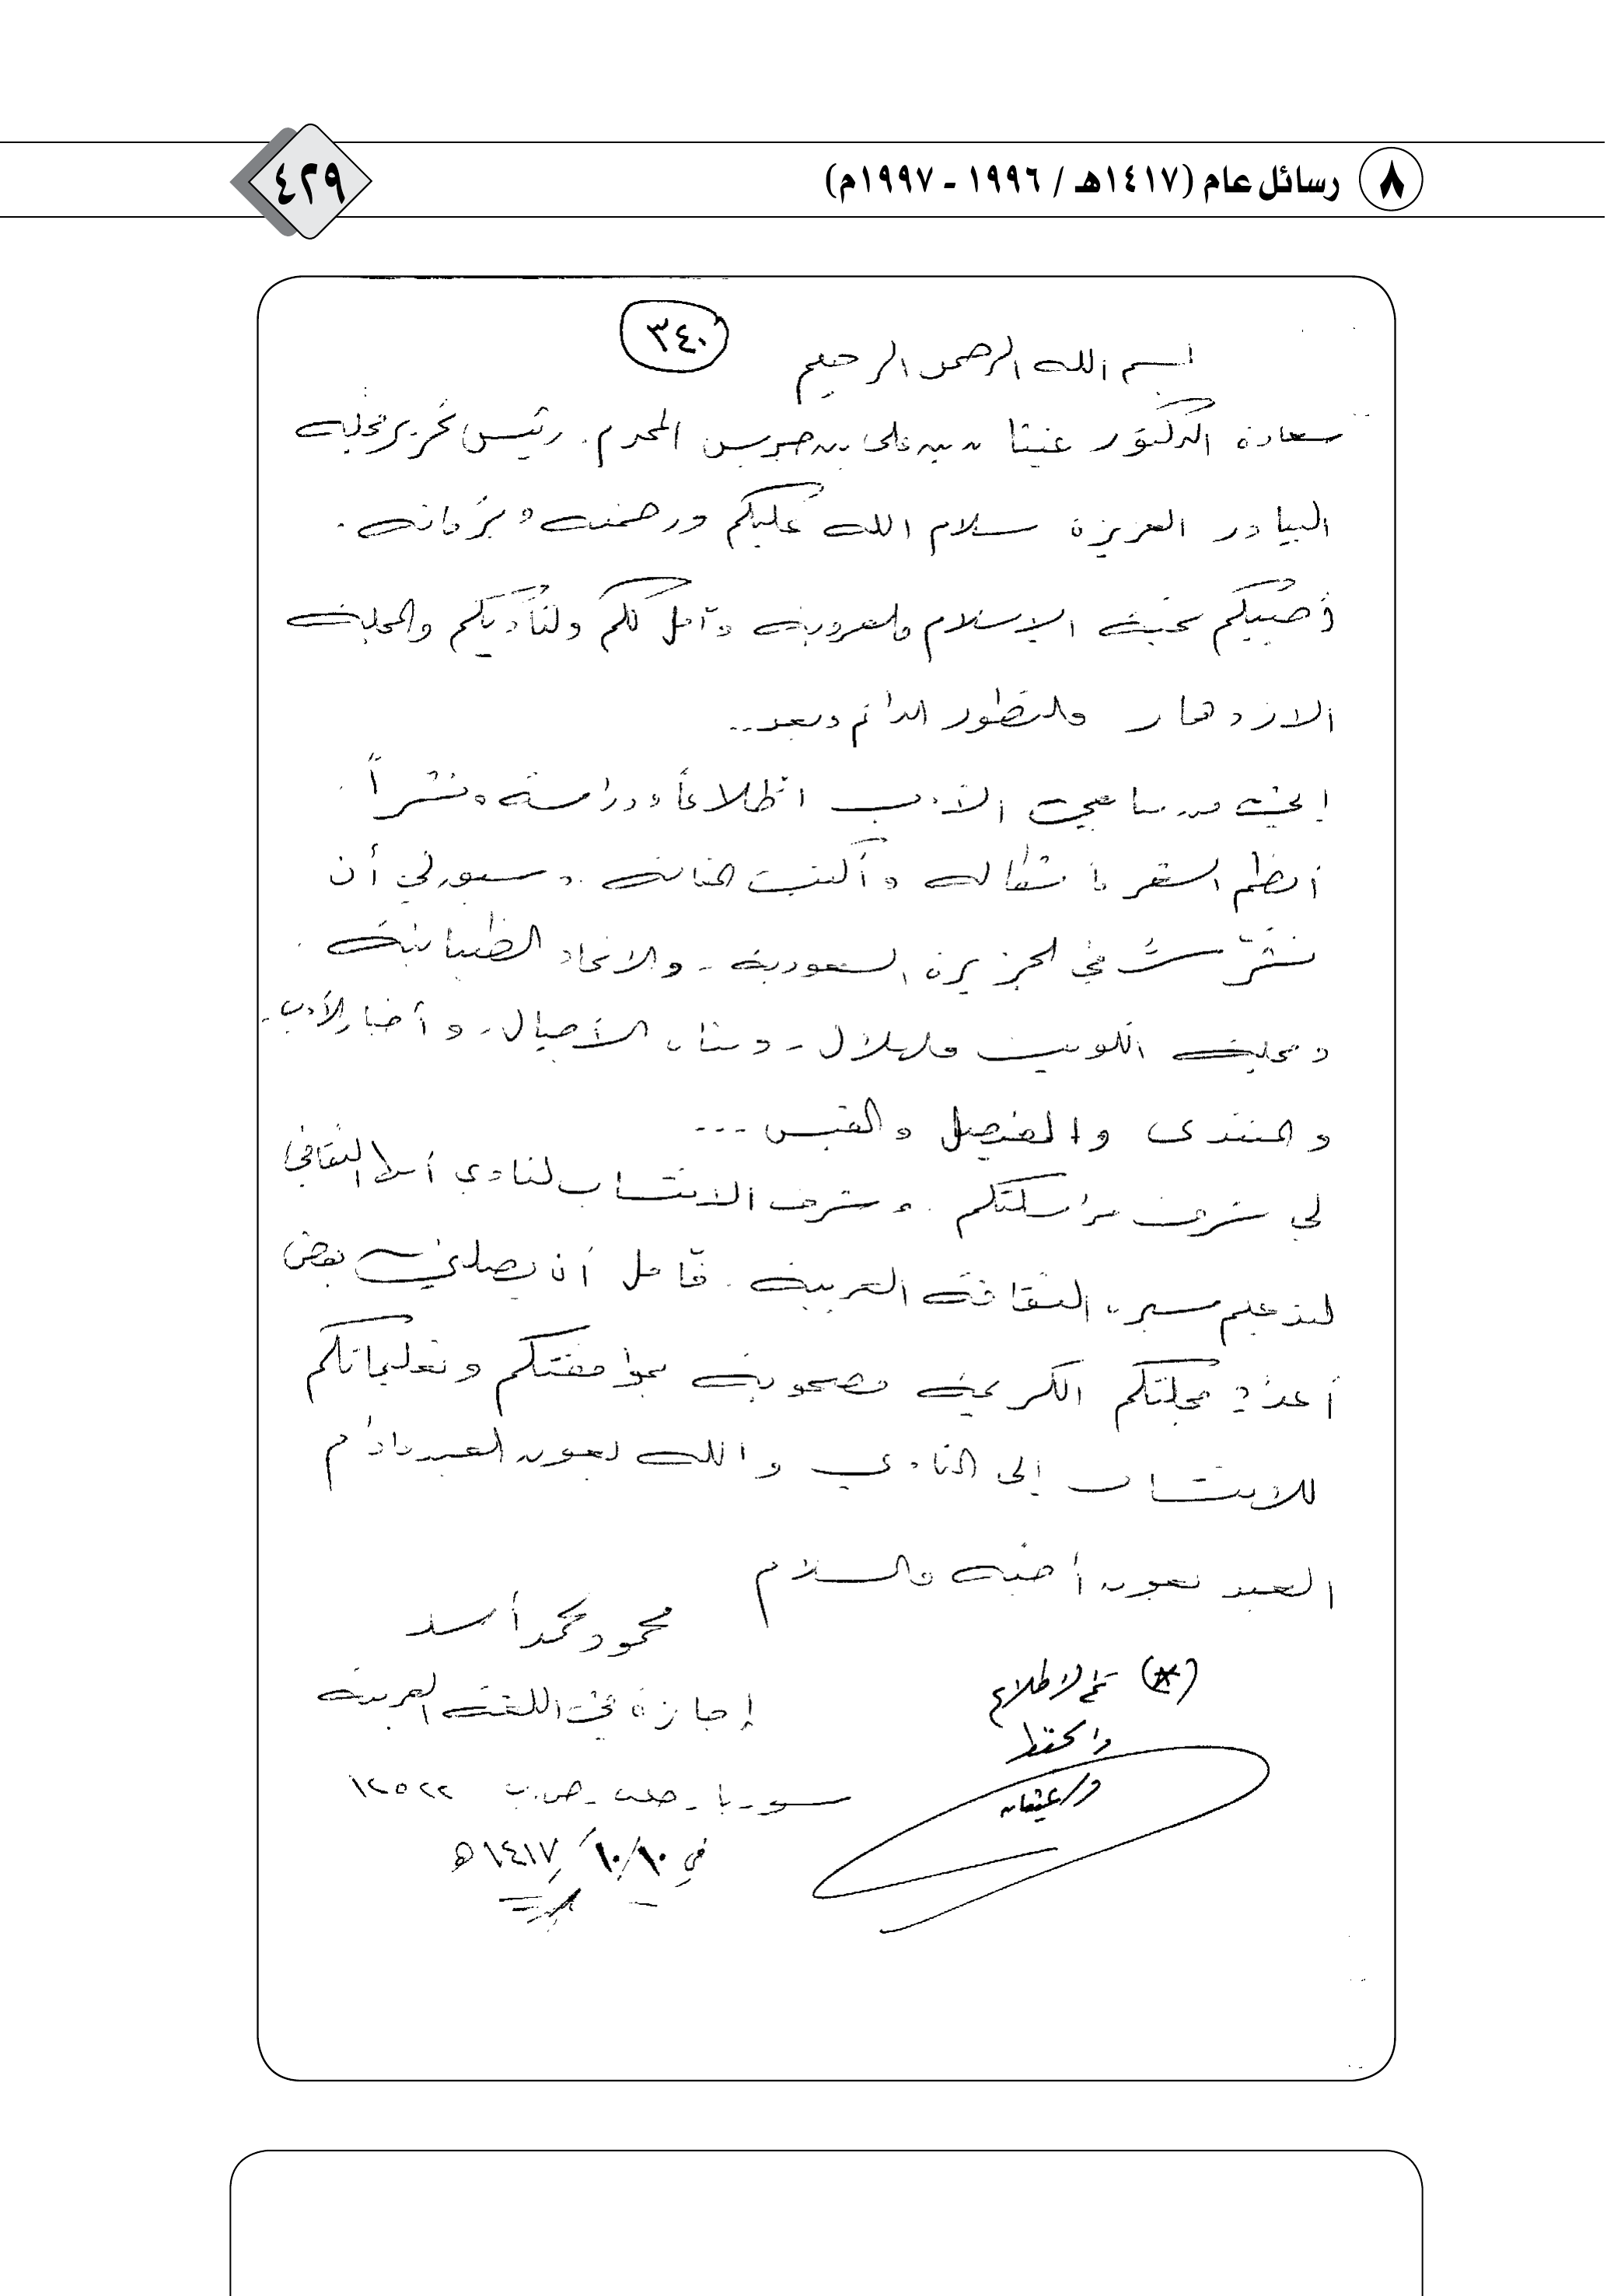 ٨ رسائل عام (١٤١٧هـ / ١٩٩٦ - ١٩٩٧م)
٤٢٩
٣٤٠
بسم الله الرحمن الرحيم
سعادة الدكتور بن علي بن جريس المحترم. رئيس تحرير مجلة
البيادر العزيزة سلام الله عليكم ورحمته وبركاته.
تحية الإسلام والعروبة وآمل لكم ولناديكم والمجلة
الازدهار والتطور الدائم وبعد..
إنني من الأدب اطلاعاً ودراسة ونشراً
أنظم الشعر وأكتب .. أن
نشرت في الجزيرة السعودية - والاتحاد الظبيانية.
ومجلة الكويت والهلال - ومنار الأجيال - وأخبار الأدب -
والمنتدى والفيصل والقبس ...
لي شرف مراسلتكم. وشرف الانتساب لنادي أبها الثقافي
لتدعيم سير الثقافة العربية. فآمل أن يصلني بعض
أعداد مجلتكم الكريمة مصحوبة بموافقتكم وتعليماتكم
للانتساب إلى النادي والله بعون العبد مادام
العبد بعون أخيه والسلام
محمود محمد أسد
إجازة في اللغة العربية
سوريا - حلب - ص.ب ١٢٥٢٢
في ١٠/١٠/١٤١٧ هـ
(*) تم الاطلاع
والحفظ